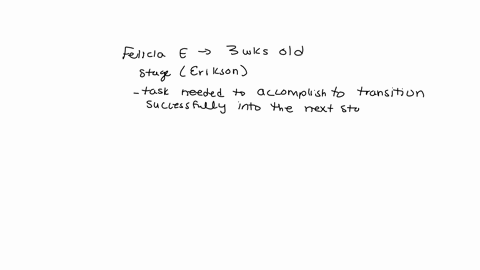 Felicia E → 3 wks old
stage (Erikson)
- task needed to accomplish to transition
successfully into the next sta